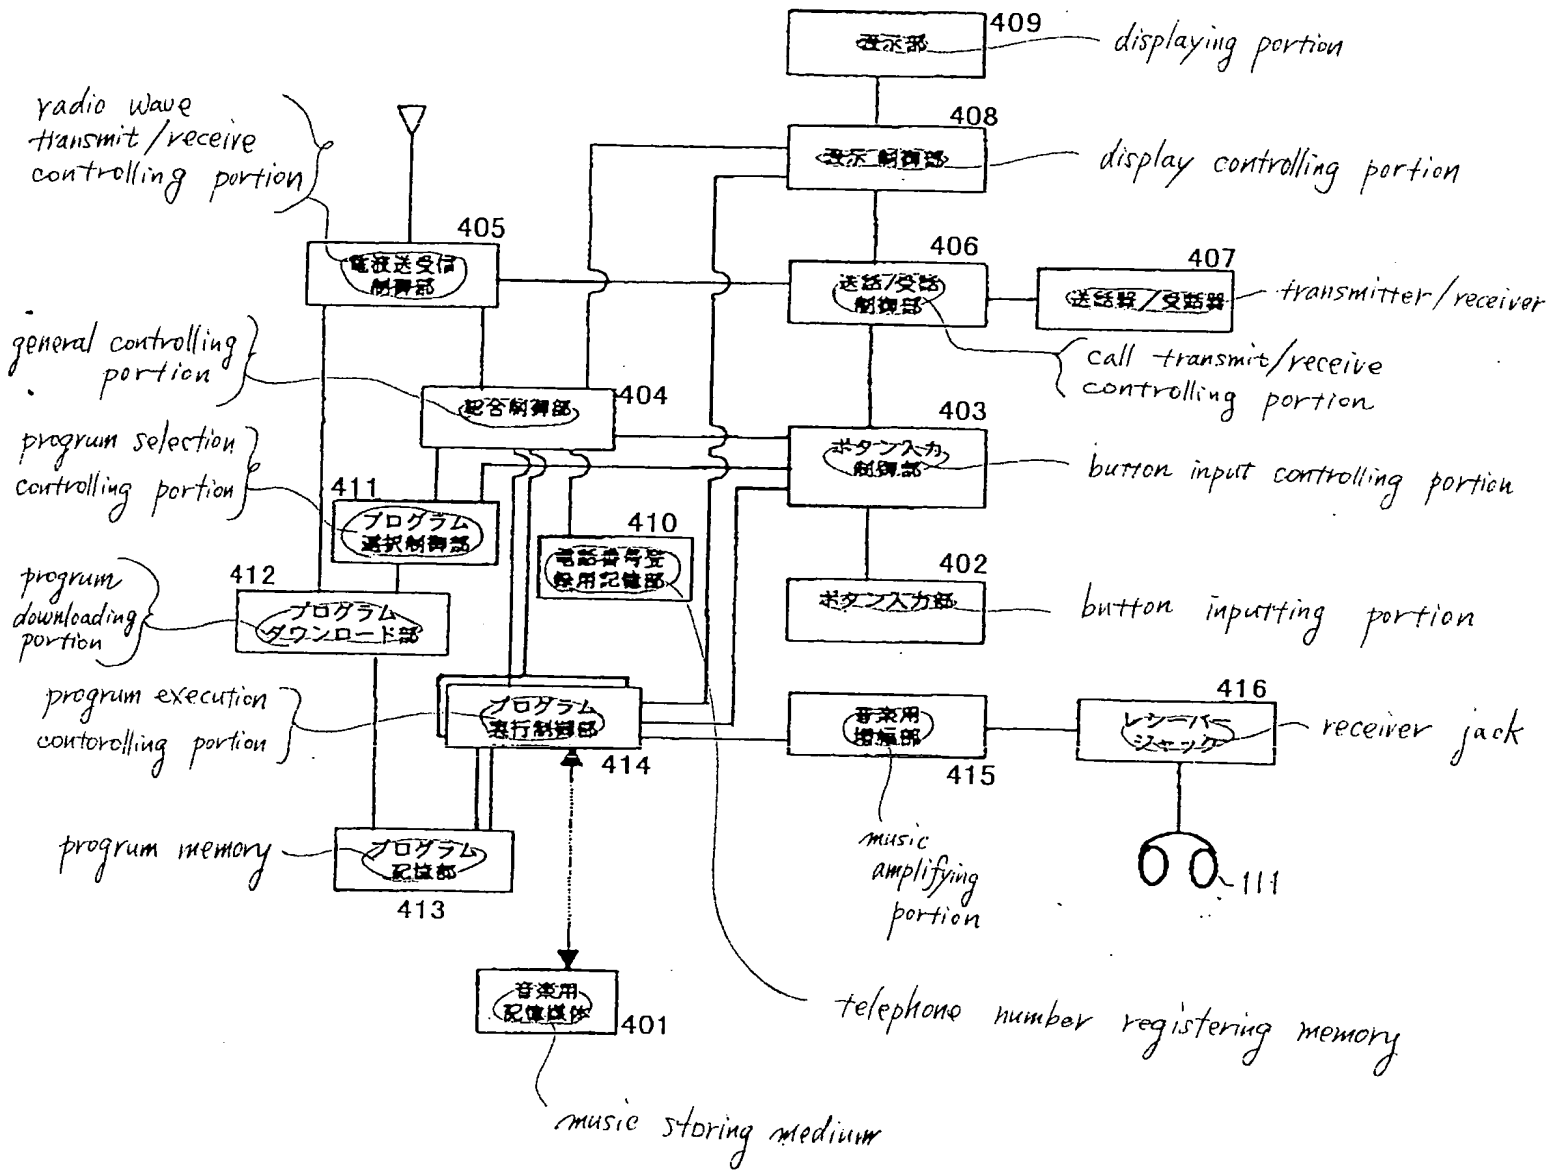 409
表示部
displaying portion
radio wave
transmit/receive
controlling portion
408
表示制御部
display controlling portion
405
電波送受信
制御部
406
送話/受話
制御部
407
送話器/受話器
transmitter/receiver
call transmit/receive
controlling portion
general controlling
portion
404
総合制御部
403
ボタン入力
制御部
button input controlling portion
progrum selection
controlling portion
411
プログラム
選択制御部
410
電話番号登
録用記憶部
402
ボタン入力部
button inputting portion
progrum
downloading
portion
412
プログラム
ダウンロード部
progrum execution
contorolling portion
プログラム
実行制御部
414
音楽用
増幅部
415
416
レシーバー
ジャック
receiver jack
progrum memory
プログラム
記憶部
413
music
amplifying
portion
111
音楽用
記憶媒体
401
telephone number registering memory
music storing medium